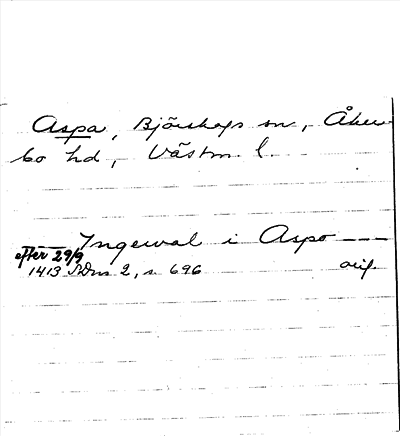 Aspa, Björskogs sn, Åker-
bo hd, Västm. l.
— Ingewal i Aspo ———
efter 29/9
1413 SDns 2, s. 696 orig.